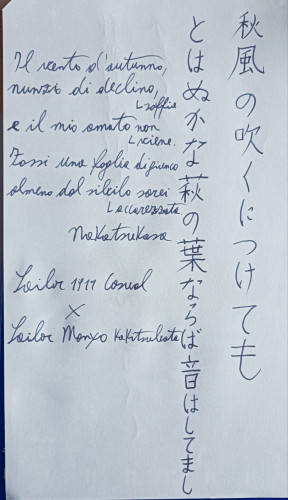 秋風の吹くにつけても
とはぬかな荻の葉ならば音はしてまし
Il vento d'autunno,
nunzio di declino,
soffia
e il mio amato non
viene.
Fossi una foglia di giunco
almeno dal sibilo sarei
accarezzata
Nakatsukasa
Sailor 1911
X
Sailor Manyo Kakitsubata